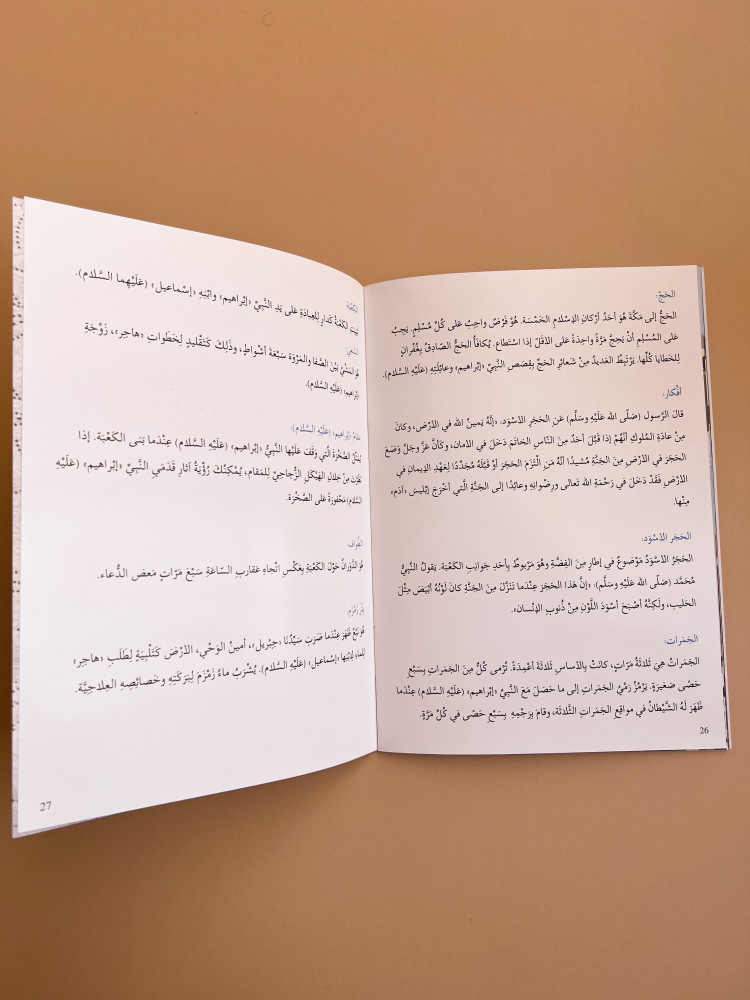 الحَجّ:
الحَجُّ إلى مَكَّةَ هُوَ أحَدُ أرْكانِ الإسْلامِ الخَمْسَة. هُوَ فَرْضٌ واجِبٌ عَلى كُلِّ مُسْلِمٍ. يَجِبُ
عَلى المُسْلِمِ أنْ يَحِجَّ مَرَّةً واحِدَةً عَلى الأقَلّ إذا اسْتَطاع. يُكافَأُ الحَجُّ الصّادِقُ بِغُفْرانٍ
لِلخَطايا كُلِّها. يَرْتَبِطُ العَديدُ مِنْ شَعائِرِ الحَجِّ بِقِصَصِ النَّبِيِّ «إبْراهيم» وعائِلَتِهِ (عَلَيْهِ السَّلام).
أفْكار:
قالَ الرَّسول (صَلّى الله عَلَيْهِ وسَلَّم) عَنِ الحَجَرِ الأسْوَد: «إنَّهُ يَمينُ الله في الأرْض، وكانَ
مِنْ عادَةِ المُلوكِ أنَّهُمْ إذا قَبَّلَ أحَدٌ مِنَ النّاسِ الخاتَمَ دَخَلَ في الأمان، وكَأنَّ عَزَّ وجَلَّ وَضَعَ
الحَجَرَ في الأرْضِ مِنَ الجَنَّةِ مُشيدًا أنَّهُ مَن الْتَزَمَ الحَجَرَ أوْ قَبَّلَهُ مُجَدِّدًا لِعَهْدِ الإيمانِ في
الأرْضِ فَقَدْ دَخَلَ في رَحْمَةِ الله تَعالى ورِضْوانِهِ وعائِدًا إلى الجَنَّةِ الَّتي أخْرَجَ إبْليسَ «آدَم»
مِنْها.
الحَجَر الأسْوَد:
الحَجَرُ الأسْوَدُ مَوْضوعٌ في إطارٍ مِنَ الفِضَّةِ وهُوَ مَرْبوطٌ بِأحَدِ جَوانِبِ الكَعْبَة. يَقولُ النَّبِيُّ
مُحَمَّد (صَلّى الله عَلَيْهِ وسَلَّم): «إنَّ هَذا الحَجَرَ عِنْدَما تَنَزَّلَ مِنَ الجَنَّةِ كانَ لَوْنُهُ أبْيَضَ مِثْلَ
الحَليب، ولَكِنَّهُ أصْبَحَ أسْوَدَ اللَّوْنِ مِنْ ذُنوبِ الإنْسان».
الجَمَرات:
الجَمَراتُ هِيَ ثَلاثَةُ مَرّاتٍ، كانَتْ بِالأساسِ ثَلاثَةَ أعْمِدَةٍ. تُرْمى كُلٌّ مِنَ الجَمَراتِ بِسَبْعِ
حَصًى صَغيرَة. يَرْمُزُ رَمْيُ الجَمَراتِ إلى ما حَصَلَ مَعَ النَّبِيِّ «إبْراهيم» (عَلَيْهِ السَّلام) عِنْدَما
ظَهَرَ لَهُ الشَّيْطانُ في مواقِعِ الجَمَراتِ الثَّلاثَة، وقامَ بِرَجْمِهِ بِسَبْعِ حَصًى في كُلِّ مَرَّةٍ.
26
الكَعْبَة:
بُنِيَتِ الكَعْبَةُ كَدارٍ لِلعِبادَةِ عَلى يَدِ النَّبِيِّ «إبْراهيم» وابْنِهِ «إسْماعيل» (عَلَيْهِما السَّلام).
السَّعْي:
هُوَ المَشْيُ بَيْنَ الصَّفا والمَرْوَةِ سَبْعَةَ أشْواطٍ، وذَلِكَ كَتَقْليدٍ لِخَطَواتِ «هاجَر»، زَوْجَةِ
«إبْراهيم» (عَلَيْهِ السَّلام).
مَقام «إبْراهيم» (عَلَيْهِ السَّلام):
يُمَثِّلُ الصَّخْرَةَ الَّتي وَقَفَ عَلَيْها النَّبِيُّ «إبْراهيم» (عَلَيْهِ السَّلام) عِنْدَما بَنى الكَعْبَة. إذا
نَظَرْتَ مِنْ خِلالِ الهَيْكَلِ الزُّجاجِيِّ لِلمَقام، يُمْكِنُكَ رُؤْيَةُ آثارِ قَدَمَيِ النَّبِيِّ «إبْراهيم» (عَلَيْهِ
السَّلام) مَحْفورَةً عَلى الصَّخْرَة.
الطَّواف:
هُوَ الدَّوَرانُ حَوْلَ الكَعْبَةِ بِعَكْسِ اتِّجاهِ عَقارِبِ السّاعَةِ سَبْعَ مَرّاتٍ مَعض الدُّعاء.
بِئْر زَمْزَم:
هُوَ نَبْعٌ ظَهَرَ عِنْدَما ضَرَبَ سَيِّدُنا «جِبْريل»، أمينُ الوَحْي، الأرْضَ كَتَلْبِيَةٍ لِطَلَبِ «هاجَر»
لِلماءِ لِابْنِها «إسْماعيل» (عَلَيْهِ السَّلام). يُشْرَبُ ماءُ زَمْزَمَ لِبَرَكَتِهِ وخَصائِصِهِ العِلاجِيَّة.
27